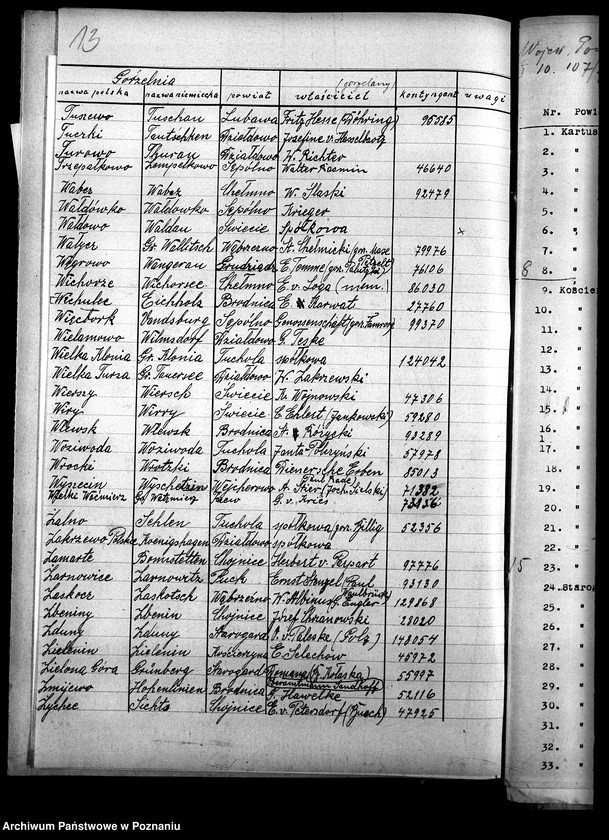 13
Gorzelnia
nazwa polska nazwa niemiecka powiat właściciel (gorzelany) kontyngent uwagi
Tuszewo Tuschau Lubawa Fritz Hesse 95585
Tuczki Tautschken Działdowo Josefine v. Hasselkotz
Turowo Thurau Działdowo H. Richter
Trzepałkowo Zempelkowo Sępólno Walter 46640
Wabcz Wabcz Chełmno W. Slaski 92479
Wałdówko Waldowko Sępólno Krieger
Wałdowo Waldau Świecie Spółkowa x
Wałycz Gr. Wallitsch Wąbrzeźno St. Chełmicki 79976
Węgrowo Wangerau Grudziądz E. Temme 76106
Wichorze Wichorsee Chełmno E. v. Loga (niem.) 86030
Wichulec Eichholz Brodnica E. Karwat 27760
Więcbork Vandsburg Sępólno Genossenschaft 99370
Wielamowo Wilmsdorf Działdowo G. Teske
Wielka Klonia Gr. Klonia Tuchola spółkowa 124042
Wielka Turza Gr. Tauersee Działdowo W. Zakrzewski
Wierszy Wiersch Świecie Wojnowski 47306
Wiry Wirry Świecie E. Ehlert (Jankowski) 59280
Wlewsk Wlewsk Brodnica St. Różycki 93289
Woziwoda Woziwoda Tuchola 57978
Wrocki Wrotzki Brodnica Wienersche Erben 85013
Wyszecin Wyschetzin Wejherowo A. Stier
Wielki Waćmierz Gr. Watzmirz Tczew G. v. Kries
Żalno Sehlen Tuchola spółkowa 52356
Zakrzewo Polskie Koenigshagen Działdowo spółkowa
Zamarte Bonstetten Chojnice Herbert v. Parpart 97776
Żarnowiec Zarnowitz Puck Ernst Paul 93130
Zaskocz Zaskotsch Wąbrzeźno W. Albinus 129868
Zbeniny Zbenin Chojnice Józef Chranowski 28020
Zduny Zduny Starogard O. v. Paleske (Polz) 148054
Zielenin Zielenin Kościerzyna E. Selechow 45972
Zielona Góra Grünberg Starogard 55997
Żmijewo Hohenlinien Brodnica G. Hawelke 52116
Żychce Sichts Chojnice E. v. Petersdorf 47925
10. 107/
Nr. Powi
1. Kartuz
2. "
3. "
4. "
5. "
6. "
7. "
8 8. "
9. Kościer
10. "
11. "
12. "
13. "
14. "
15. "
16. "
17. "
18. "
19. "
20. "
21. "
22. "
23. "
24. Starog
25. "
26. "
27. "
28. "
29. "
30. "
31. "
32. "
33. "
Archiwum Państwowe w Poznaniu